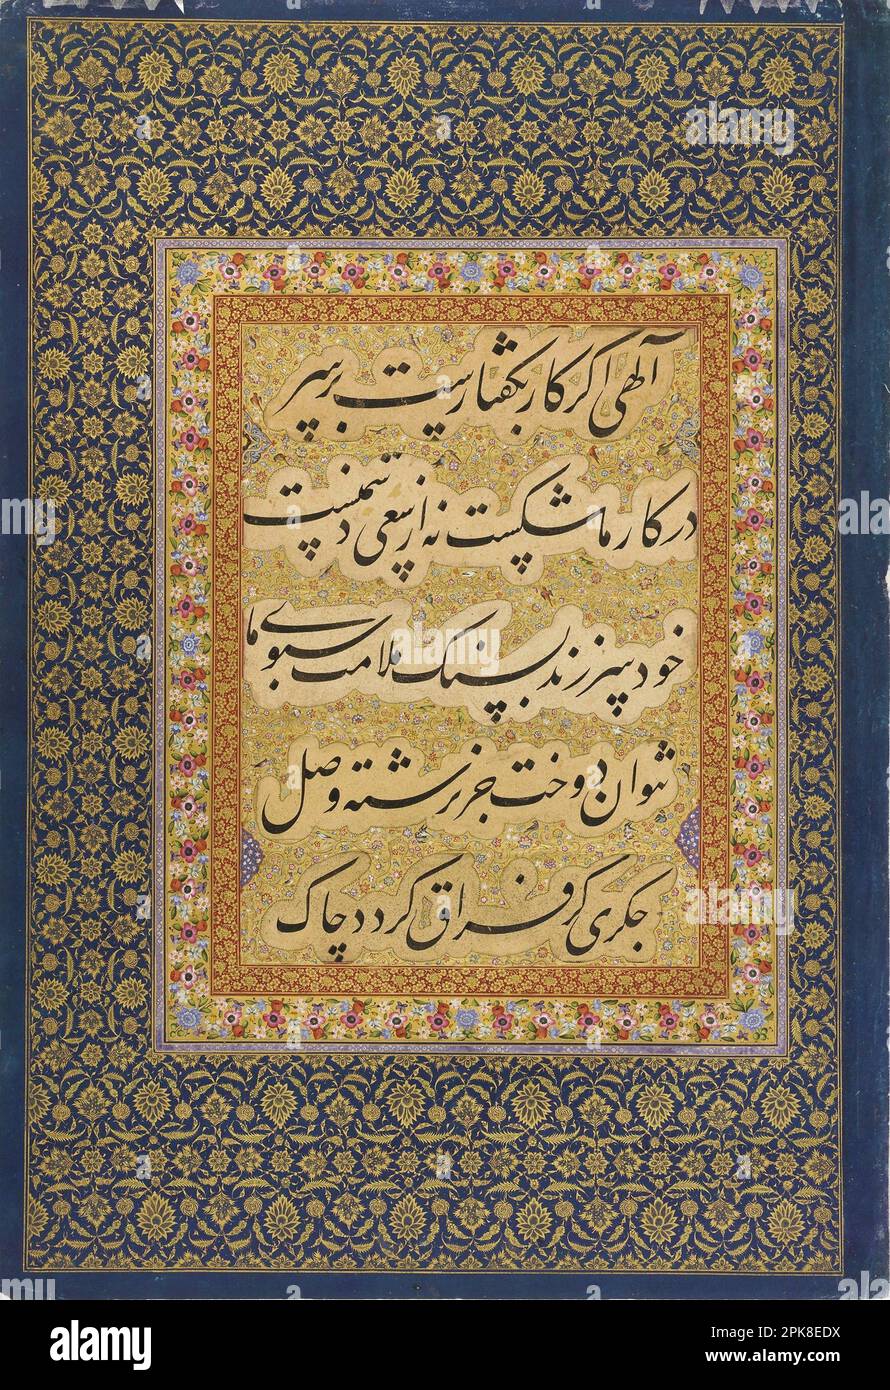 آلهی اگر کار بگفتارست بر سر
در کار ما شکست نه از سعی دشمنست
خود سر زند بسنک ملامت سبوی ما
نتوان دوخت جز برشته وصل
جکری کز فراق کردد چاک
alamy
Image ID: 2PK8EDX
www.alamy.com